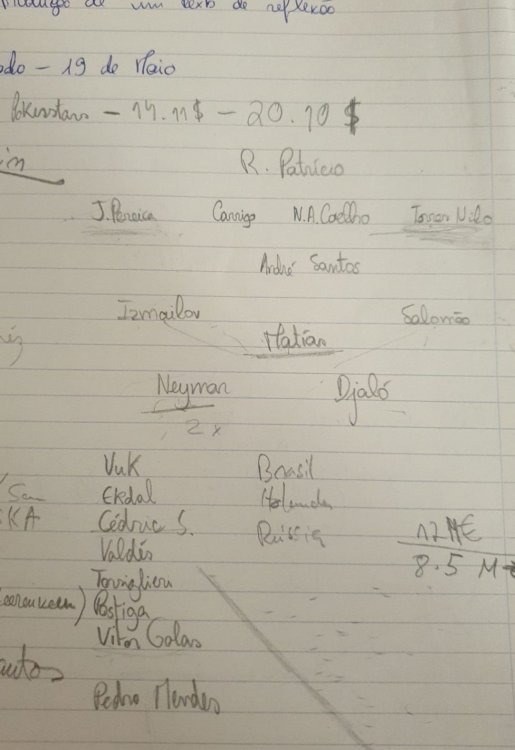 de um texto de reflexão
19 de Maio
Pokerstars - 14.11$ - 20.10 $
R. Patrício
J. Pereira Carriço N.A. Coelho Torsen Nilo
André Santos
Izmailov Salomão
Matías
Neyman Djaló
2x
Vuk Brasil
Ekdal Holanda
KA Cédric S. Rússia 17 M€
Valdés 8.5 M
Postiga
Vitor Golas
Pedro Mendes